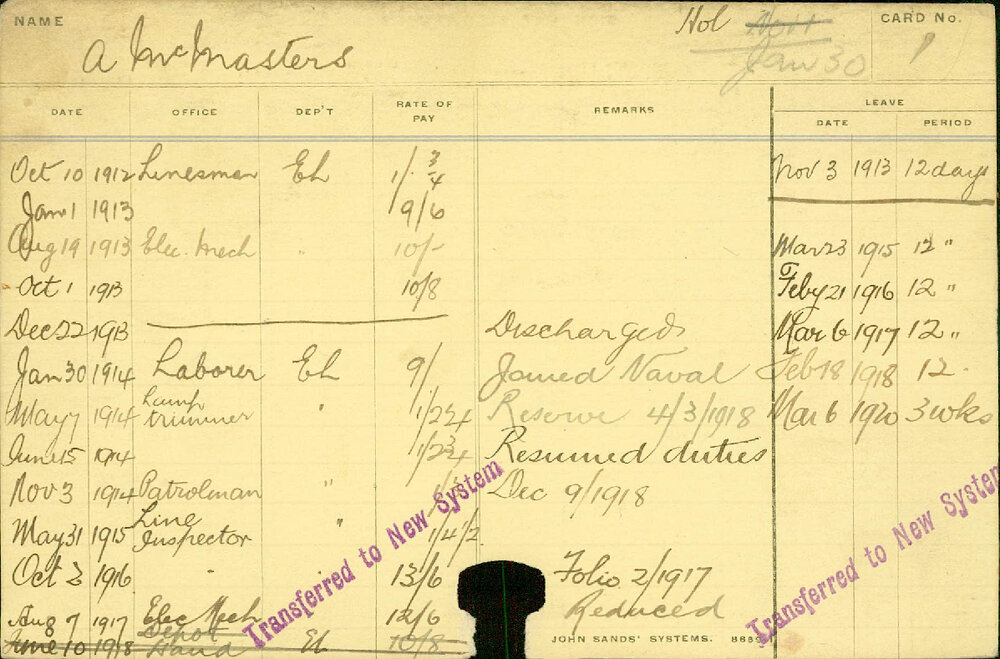 NAME A McMasters Hol Nov 1 Jan 30 CARD No. 1
DATE OFFICE DEP'T RATE OF PAY REMARKS LEAVE
DATE PERIOD
Oct 10 1912 Linesman EL 1/ 3/4 Nov 3 1913 12 days
Jan 1 1913 9/6
Aug 19 1913 Elec. Mech " 10/- Mar 23 1915 12 "
Oct 1 1913 10/8 Feby 21 1916 12 "
Dec 22 1913 Discharged Mar 6 1917 12 "
Jan 30 1914 Laborer EL 9/ Joined Naval Feb 18 1918 12 "
May 7 1914 Lamp trimmer " 1/2 1/4 Reserve 4/3/1918 Mar 6 1920 3 wks
June 15 1914 1/2 3/4 Resumed duties
Nov 3 1914 Patrolman " Dec 9/1918
May 31 1915 Line Inspector " 1/4 1/2
Oct 2 1916 " " 13/6 Folio 2/1917
Aug 7 1917 Elec Mech 12/6 Reduced
June 10 1918 Depot Hand EL 10/8
JOHN SANDS' SYSTEMS.
Transferred to New System
Transferred to New System